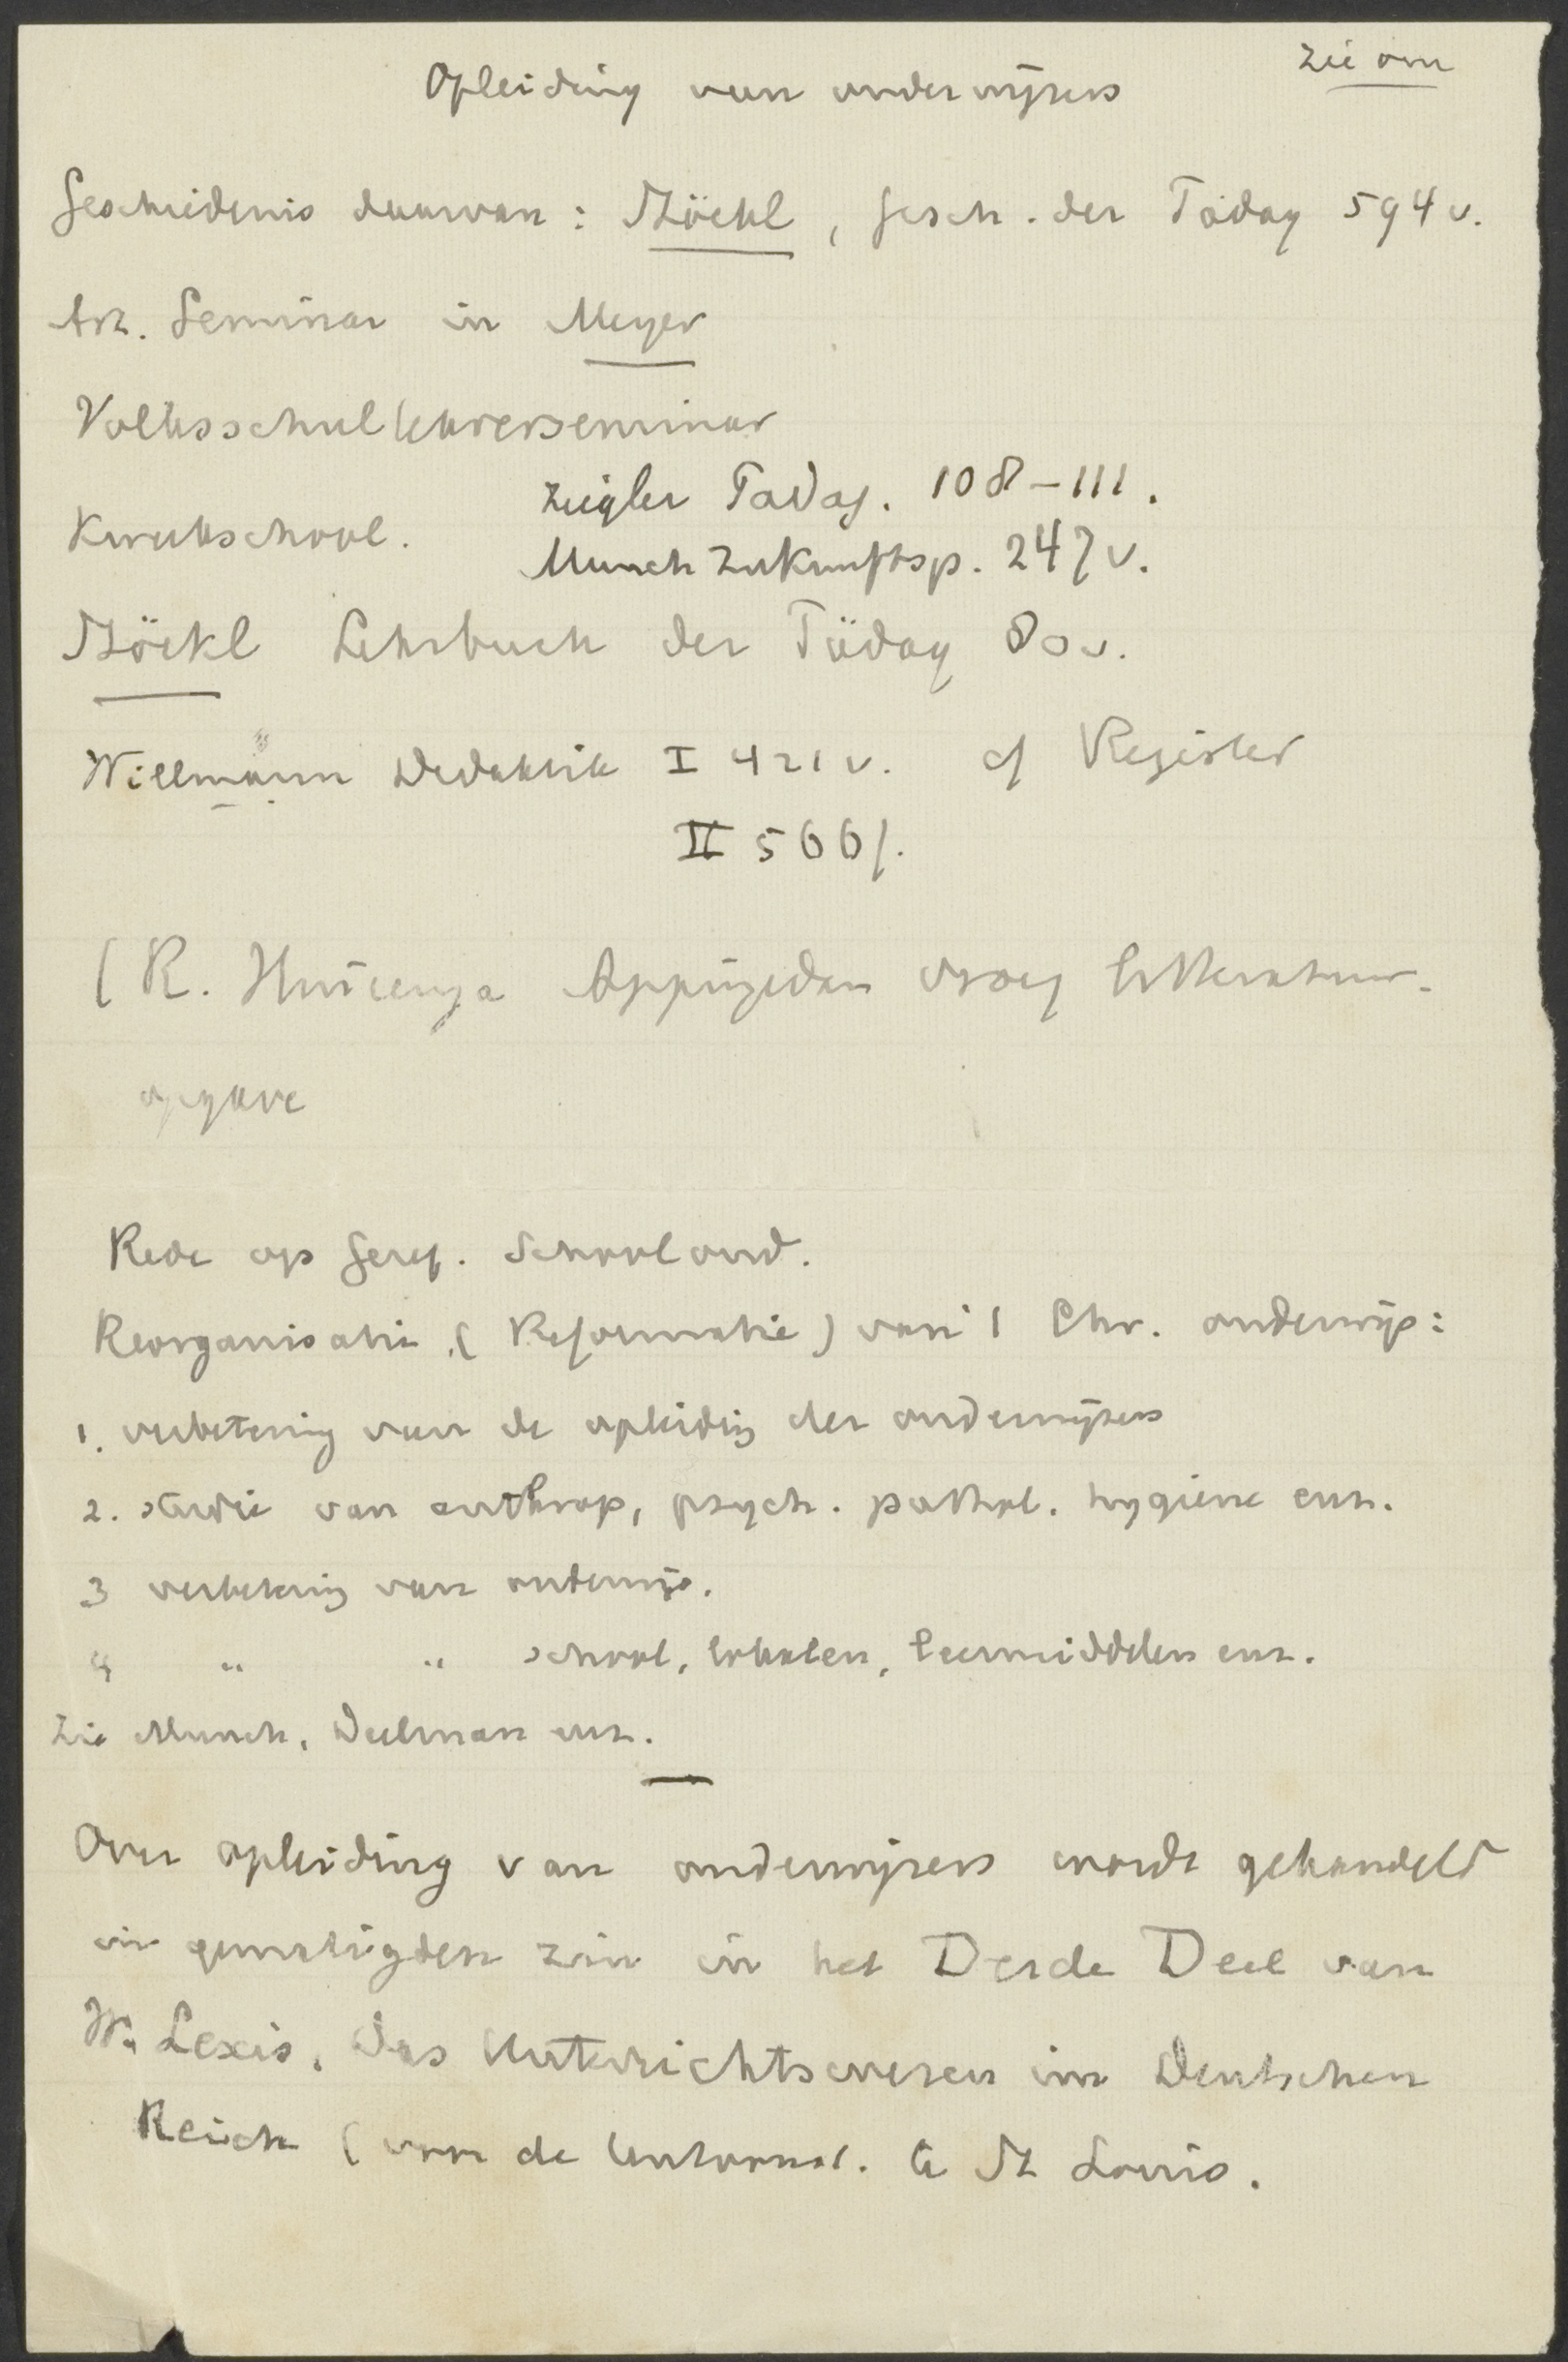 zie om
Opleiding van onderwijzers
Geschiedenis daarvan: Stöckl, Gesch. der Pädag 594 v.
Art. Seminar in Meyer
Volksschullehrerseminar
Ziegler Padag. 108-111.
Kweekschool.
Munch Zukunftsp. 247 v.
Stöckl Lehrbuch der Pädag 80 v.
Willmann Didaktik I 421 v. cf Register
II 566/.
(R. Huizenga Appingedam vroeg litteratuur-
opgave
Rede op Geref. Schoolond.
Reorganisatie (Reformatie) van 't Chr. onderwijs:
1. verbetering van de opleiding der onderwijzers
2. studie van anthrop, psych. pathol. hygiene enz.
3 verbetering van onderwijs.
4 " " school, lokalen, leermiddelen enz.
Zie Munch, Deelman enz.
Over opleiding van onderwijzers wordt gehandeld
in gunstigden zin in het Derde Deel van
W. Lexis, Das Unterrichtswesen im Deutschen
Reich (voor de te St Louis.